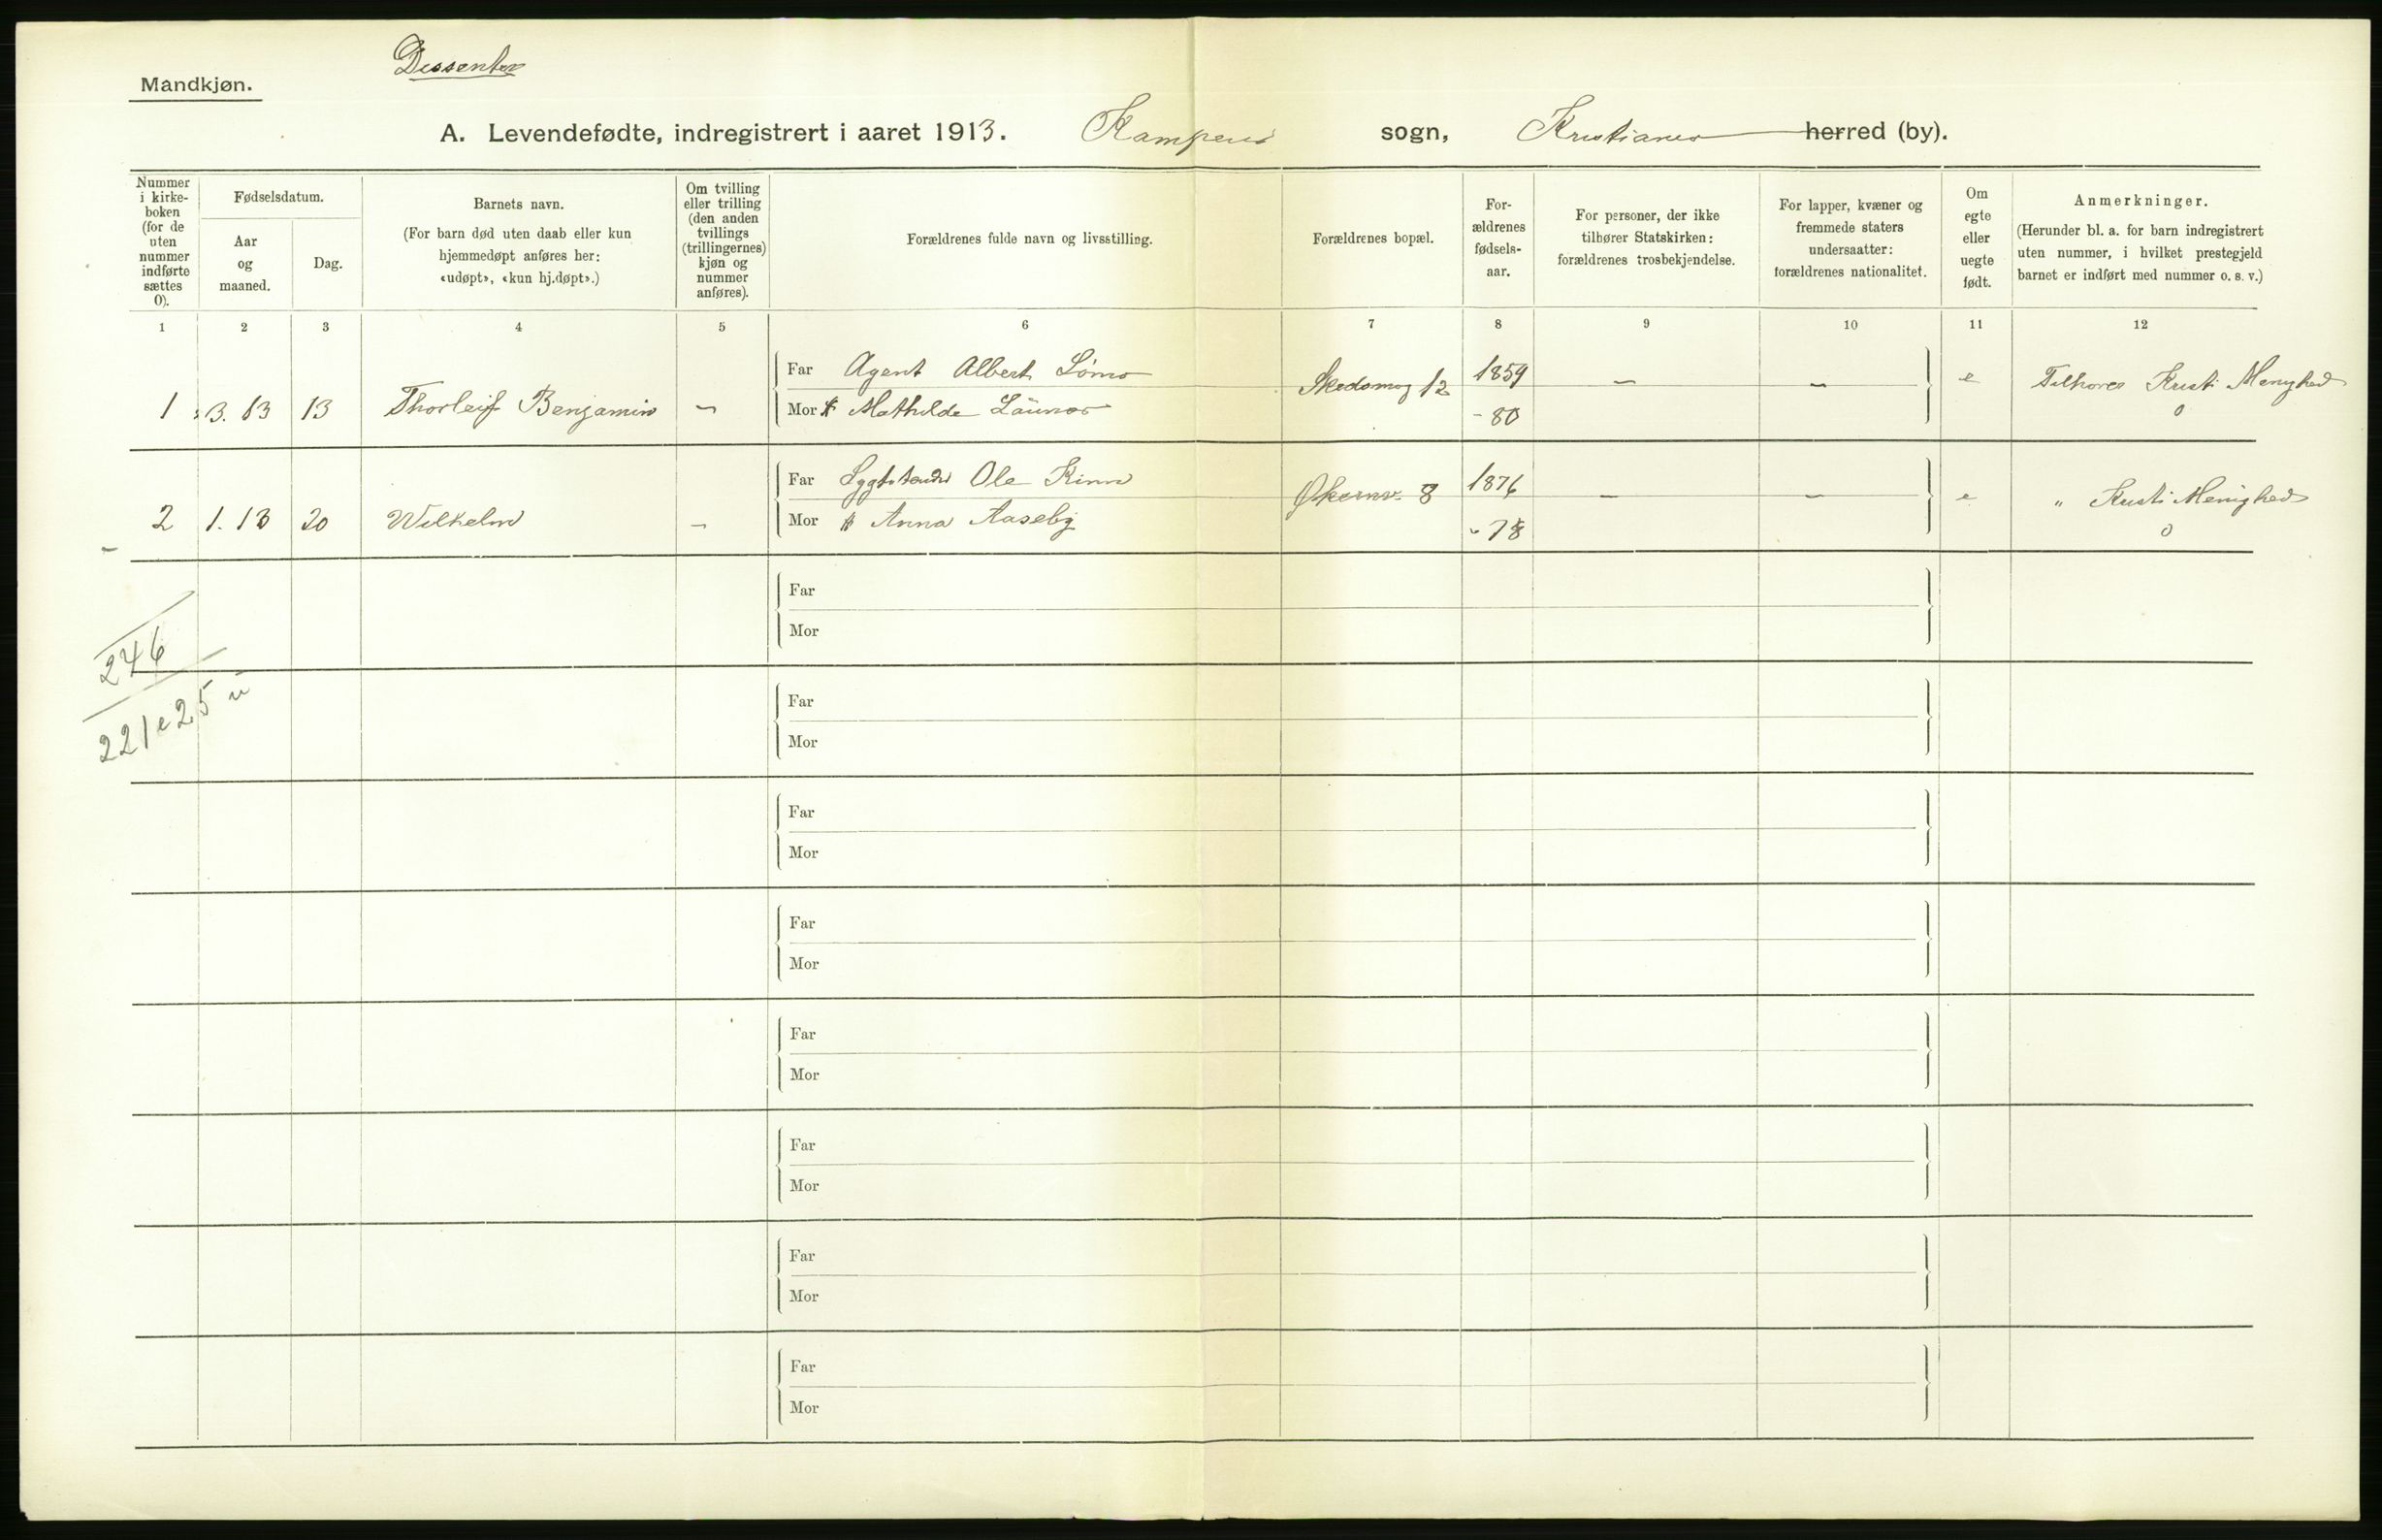 Mandkjøn.
Dissenter
A. Levendefødte, indregistrert i aaret 1913. Kampens sogn, Kristiania herred (by).
Nummer i kirke-boken (for de uten nummer indførte sættes 0).
Fødselsdatum.
Aar og maaned.
Dag.
Barnets navn.
(For barn død uten daab eller kun hjemmedøpt anføres her: «udøpt», «kun hj.døpt».)
Om tvilling eller trilling (den anden tvillings (trillingernes) kjøn og nummer anføres).
Forældrenes fulde navn og livsstilling.
Forældrenes bopæl.
For-ældrenes fødsels-aar.
For personer, der ikke tilhører Statskirken: forældrenes trosbekjendelse.
For lapper, kvæner og fremmede staters undersaatter: forældrenes nationalitet.
Om egte eller uegte født.
Anmerkninger.
(Herunder bl. a. for barn indregistrert uten nummer, i hvilket prestegjeld barnet er indført med nummer o. s. v.)
1 2 3 4 5 6 7 8 9 10 11 12
Far Agent Albert Skedsmog 12 1859 – – e Tilhører Kristi Menighed
1 3. 13 13 Thorleif Benjamin – Mor Mathilde - 80 0
Far Ole Kinn Økernv. 8 1876 – – e " Kristi Menighed
2 1. 13 20 Wilhelm – Mor Anna Aaseby - 78 0
Far
Mor
246
Far
221 e 25 u
Mor
Far
Mor
Far
Mor
Far
Mor
Far
Mor
Far
Mor
Far
Mor